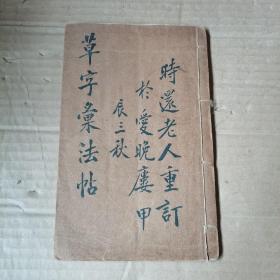 時還老人重訂
於愛晚廔甲
辰三秋
草字彙法帖